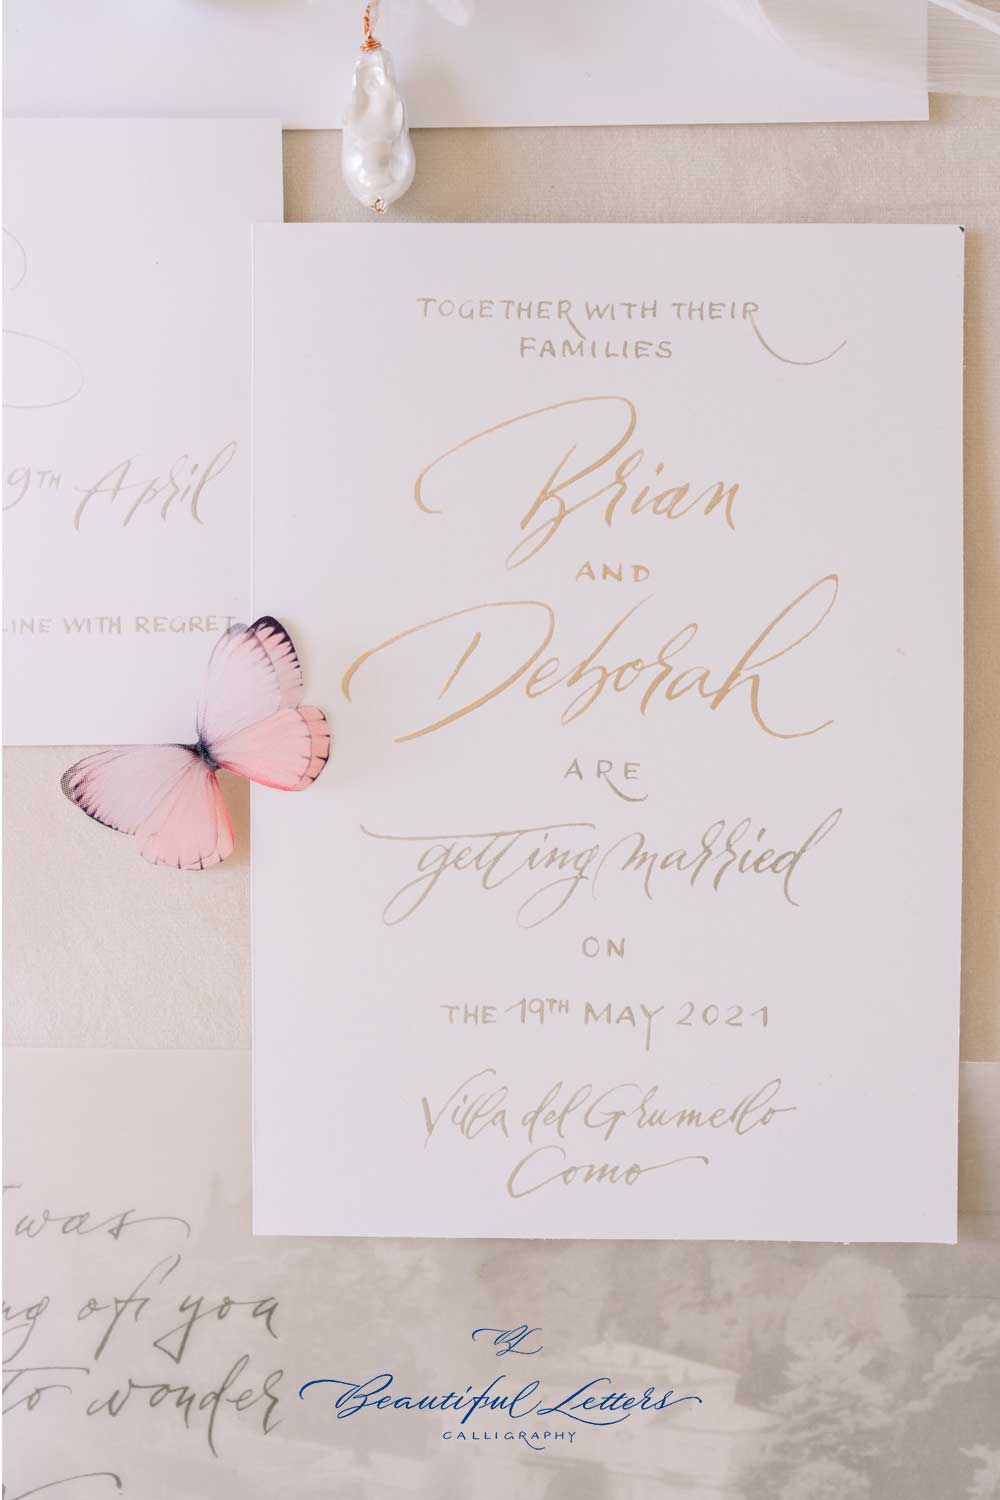 TOGETHER WITH THEIR
FAMILIES
Brian
AND
Deborah
ARE
getting married
ON
THE 19TH MAY 2021
Villa del Grumello
Como
9TH April
LINE WITH REGRET
was
of you
to wonder
BL
Beautiful Letters
CALLIGRAPHY